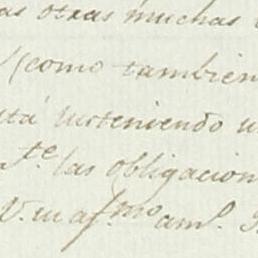 as otras muchas
(como tambien
está insteniendo u
te las obligacion
V. su af.mo am.o